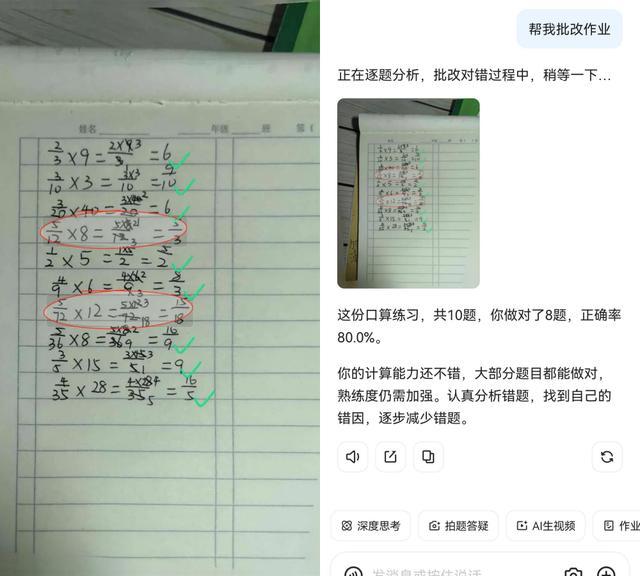 姓名 年级 班
2/3 × 9 = 2×9 3/3 1 = 6
3/10 × 3 = 3×3/10 = 9/10
3/20 × 40 = 3×40 2/20 = 6
5/12 × 8 = 5×8 2/12 3 = 5/3
1/2 × 5 = 1×5/2 = 5/2
4/9 × 6 = 4×6 2/9 3 = 8/3
5/72 × 12 = 5×12 3/72 18 = 15/18
5/36 × 8 = 5×8 2/36 9 = 16/9
3/5 × 15 = 3×15 3/5 1 = 9
4/35 × 28 = 4×28 4/35 5 = 16/5
帮我批改作业
正在逐题分析，批改对错过程中，稍等一下...
这份口算练习，共10题，你做对了8题，正确率
80.0%。
你的计算能力还不错，大部分题目都能做对，
熟练度仍需加强。认真分析错题，找到自己的
错因，逐步减少错题。
深度思考 拍题答疑 AI生视频 作业
发消息或按住说话